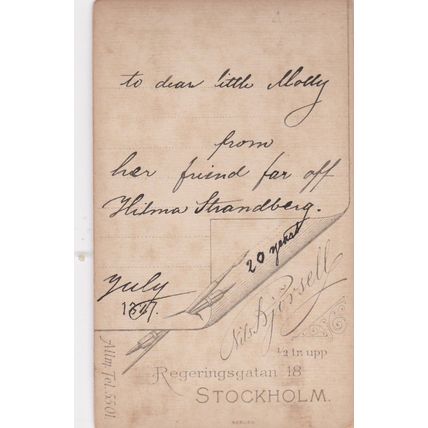 to dear little Molly
from
her friend far off
Hilma Strandberg.
20 years
July
Nils Björsell
½ tr. upp
Regeringsgatan 18
STOCKHOLM.
Allm. Tel. 5501